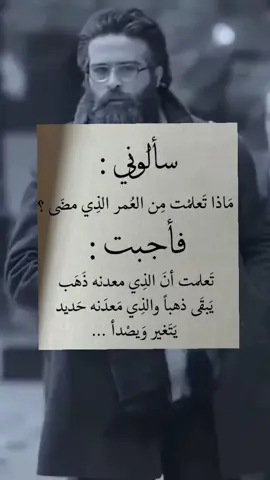 سألوني :
مَاذا تَعلمْت مِن العُمر الذِي مضَى ؟
فأجبت :
تَعلمت أنَ الذِي معدنه ذَهَب
يَبقَى ذهباً والذِي مَعدَنه حَديد
يَتَغير وَيصْدأ ...